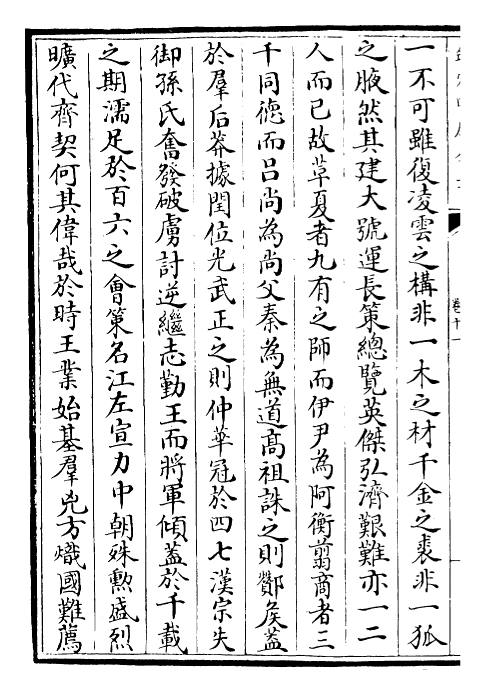 卷十一
一不可雖復凌雲之構非一木之材千金之裘非一狐
之腋然其建大號運長策總覽英傑弘濟艱難亦一二
人而已故革夏者九有之師而伊尹為阿衡翦商者三
千同德而呂尚為尚父秦為無道髙祖誅之則酇侯葢
於羣后莽據閏位光武正之則仲華冠於四七漢宗失
御孫氏奮發破虜討逆繼志勤王而將軍傾葢於千載
之期濡足於百六之會策名江左宣力中朝殊勲盛烈
曠代齊契何其偉哉於時王業始基羣兇方熾國難薦